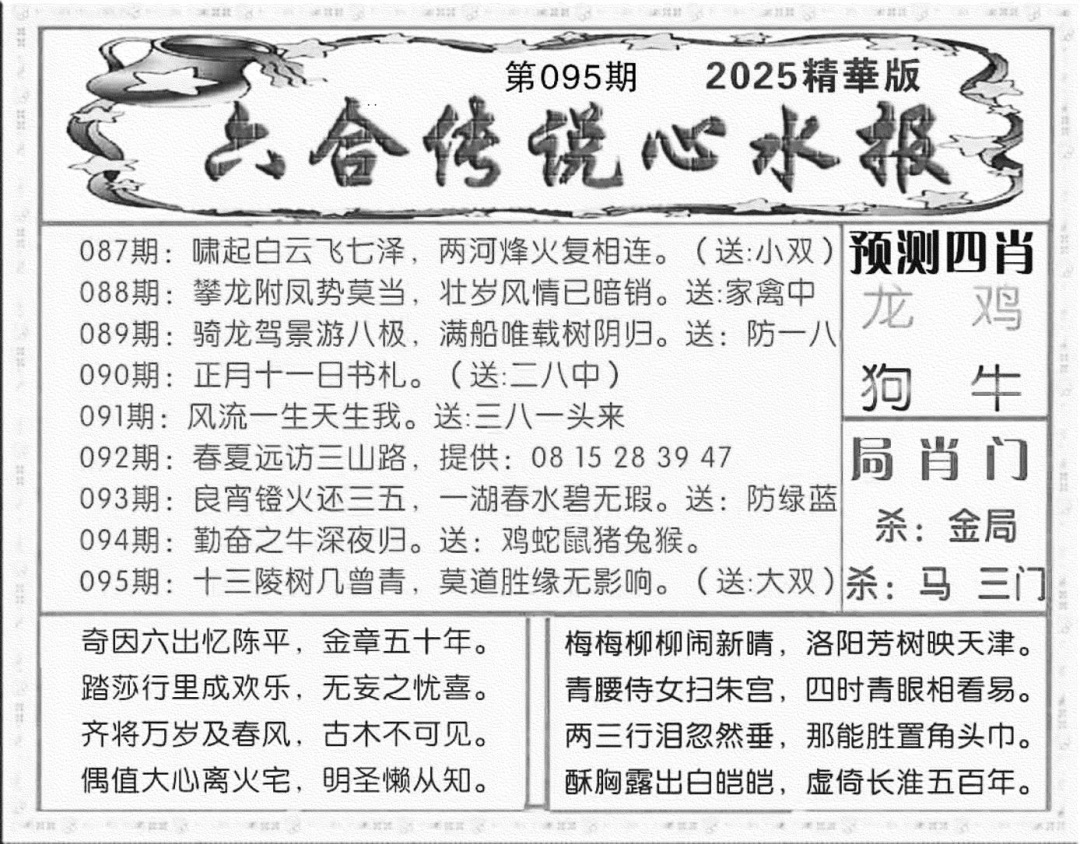 第095期 2025精華版
六合传说心水报
087期：啸起白云飞七泽，两河烽火复相连。（送:小双）
088期：攀龙附凤势莫当，壮岁风情已暗销。送:家禽中
089期：骑龙驾景游八极，满船唯载树阴归。送：防一八
090期：正月十一日书札。（送:二八中）
091期：风流一生天生我。送:三八一头来
092期：春夏远访三山路，提供：08 15 28 39 47
093期：良宵镫火还三五，一湖春水碧无瑕。送：防绿蓝
094期：勤奋之牛深夜归。送：鸡蛇鼠猪兔猴。
095期：十三陵树几曾青，莫道胜缘无影响。（送:大双）
预测四肖
龙 鸡
狗 牛
局肖门
杀：金局
杀：马 三门
奇因六出忆陈平，金章五十年。
踏莎行里成欢乐，无妄之忧喜。
齐将万岁及春风，古木不可见。
偶值大心离火宅，明圣懒从知。
梅梅柳柳闹新晴，洛阳芳树映天津。
青腰侍女扫朱宫，四时青眼相看易。
两三行泪忽然垂，那能胜置角头巾。
酥胸露出白皑皑，虚倚长淮五百年。